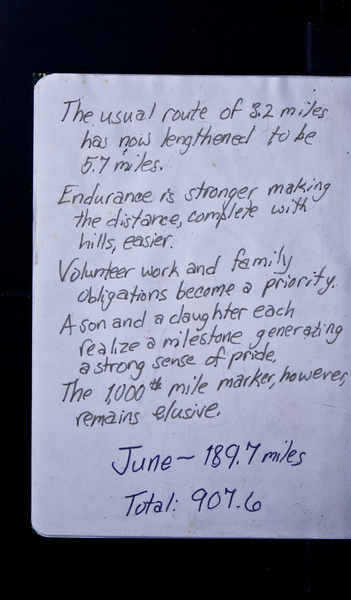 The usual route of 3.2 miles
has now lengthened to be
5.7 miles.
Endurance is stronger, making
the distance, complete with
hills, easier.
Volunteer work and family
obligations become a priority.
A son and a daughter each
realize a milestone generating
a strong sense of pride.
The 1,000th mile marker, however,
remains elusive.
June - 189.7 miles
Total: 907.6